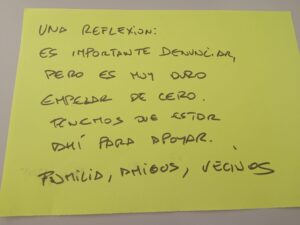 UNA REFLEXION:
ES IMPORTANTE DENUNCIAR,
PERO ES MUY DURO
EMPEZAR DE CERO.
TENEMOS QUE ESTAR
AHÍ PARA APOYAR.
FAMILIA, AMIGOS, VECINOS